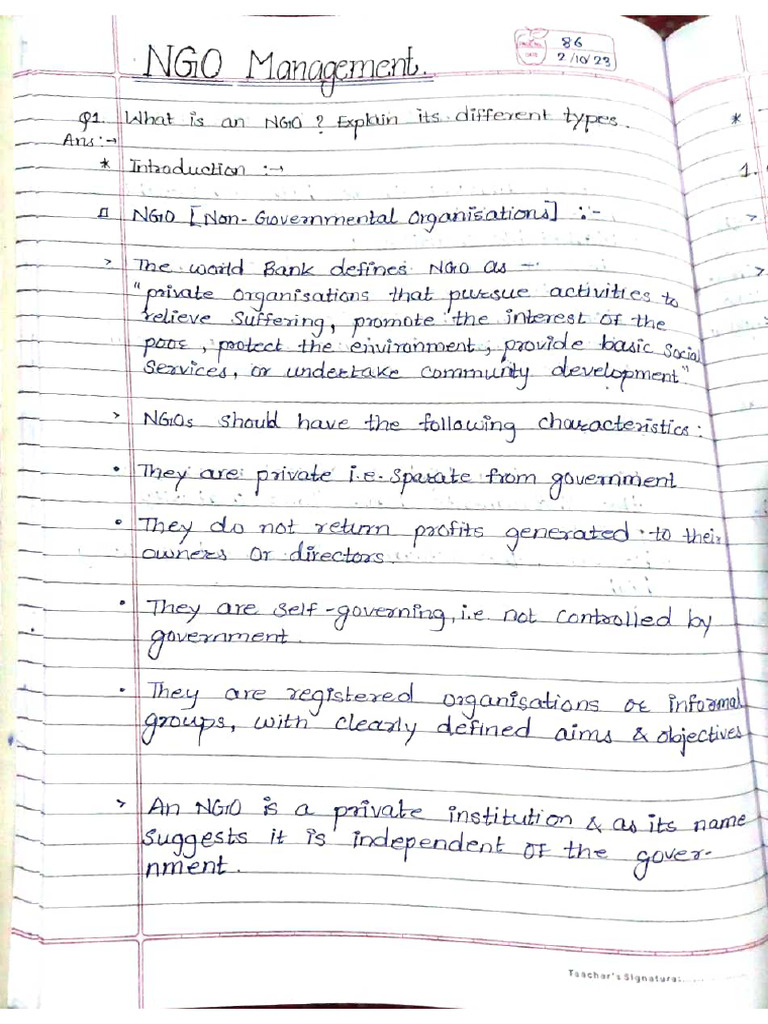 86
2/10/23
NGO Management.
Q1. What is an NGO? Explain its different types.
Ans:→
* Introduction :→
NGO [Non-Governmental Organisations] :-
> The world Bank defines NGO as -
"private organisations that pursue activities to
relieve suffering, promote the interest of the
poor, protect the environment, provide basic social
services, or undertake community development"
> NGOs should have the following characteristics:
• They are private i.e. sparate from government
• They do not return profits generated to their
owners or directors.
• They are self-governing, i.e. not controlled by
government.
• They are registered organisations or informal
groups, with clearly defined aims & objectives
> An NGO is a private institution & as its name
suggests it is independent of the gover-
nment.
Teacher's Signature:......
*
1.
>
>